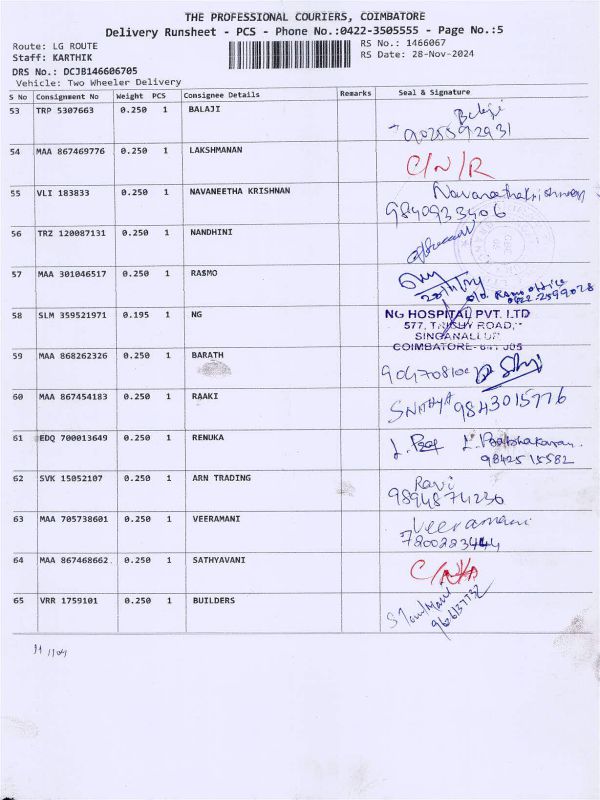 THE PROFESSIONAL COURIERS, COIMBATORE
Delivery Runsheet - PCS - Phone No.:0422-3505555 - Page No.:5
Route: LG ROUTE
RS No.: 1466067
Staff: KARTHIK
RS Date: 28-Nov-2024
DRS No.: DCJB146606705
Vehicle: Two Wheeler Delivery
S No Consignment No Weight PCS Consignee Details Remarks Seal & Signature
53 TRP 5307663 0.250 1 BALAJI Balaji
9025592931
54 MAA 867469776 0.250 1 LAKSHMANAN C/N/R
55 VLI 183833 0.250 1 NAVANEETHA KRISHNAN Navaneethakrishnan
9840933406
56 TRZ 120087131 0.250 1 NANDHINI
57 MAA 301046517 0.250 1 RASMO
0422-2599028
58 SLM 359521971 0.195 1 NG NG HOSPITAL PVT. LTD
577, TRICHY ROAD,
SINGANALLUR
COIMBATORE- 641 005
59 MAA 868262326 0.250 1 BARATH
60 MAA 867454183 0.250 1 RAAKI 9843015776
61 EDQ 700013649 0.250 1 RENUKA
98425 15582
62 SVK 15052107 0.250 1 ARN TRADING Ravi
9894874236
63 MAA 705738601 0.250 1 VEERAMANI Veeramani
7200223444
64 MAA 867468662 0.250 1 SATHYAVANI
65 VRR 1759101 0.250 1 BUILDERS